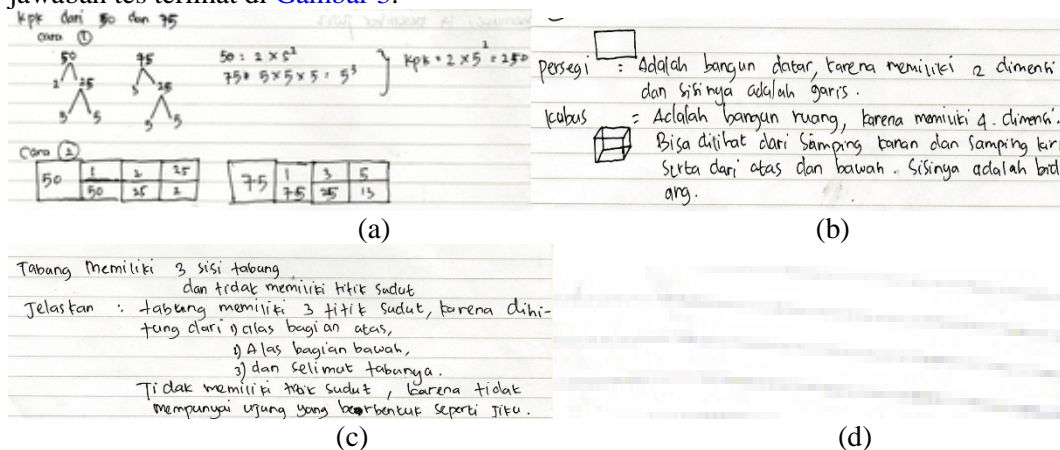 jawaban tes terlihat di Gambar 5.
kpk dari 50 dan 75
cara ①
50
2 25
5 5
75
3 25
5 5
50 = 2 × 5²
75 = 5 × 5 × 5 = 5³
kpk = 2 × 5 = 250
Cara ②
50 1 2 25
50 25 2
75 1 3 5
75 25 13
(a)
persegi : Adalah bangun datar, karena memiliki 2 dimensi
dan sisinya adalah garis.
kubus = Adalah bangun ruang, karena memiliki 4. dimensi.
Bisa dilihat dari samping kanan dan samping kir
serta dari atas dan bawah. Sisinya adalah bid
ang.
(b)
Tabang memiliki 3 sisi tabang
dan tidak memiliki titik sudut
Jelaskan : tabung memiliki 3 titik sudut, karena dihi-
tung dari 1) alas bagian atas,
2) Alas bagian bawah,
3) dan selimut tabunya.
Tidak memiliki titik sudut, karena tidak
mempunyai ujung yang berbentuk seperti siku.
(c)
(d)